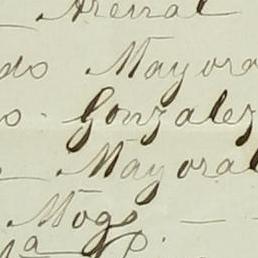 Arenal
do Mayora
o. Gonzalez
Mayoral
Moge